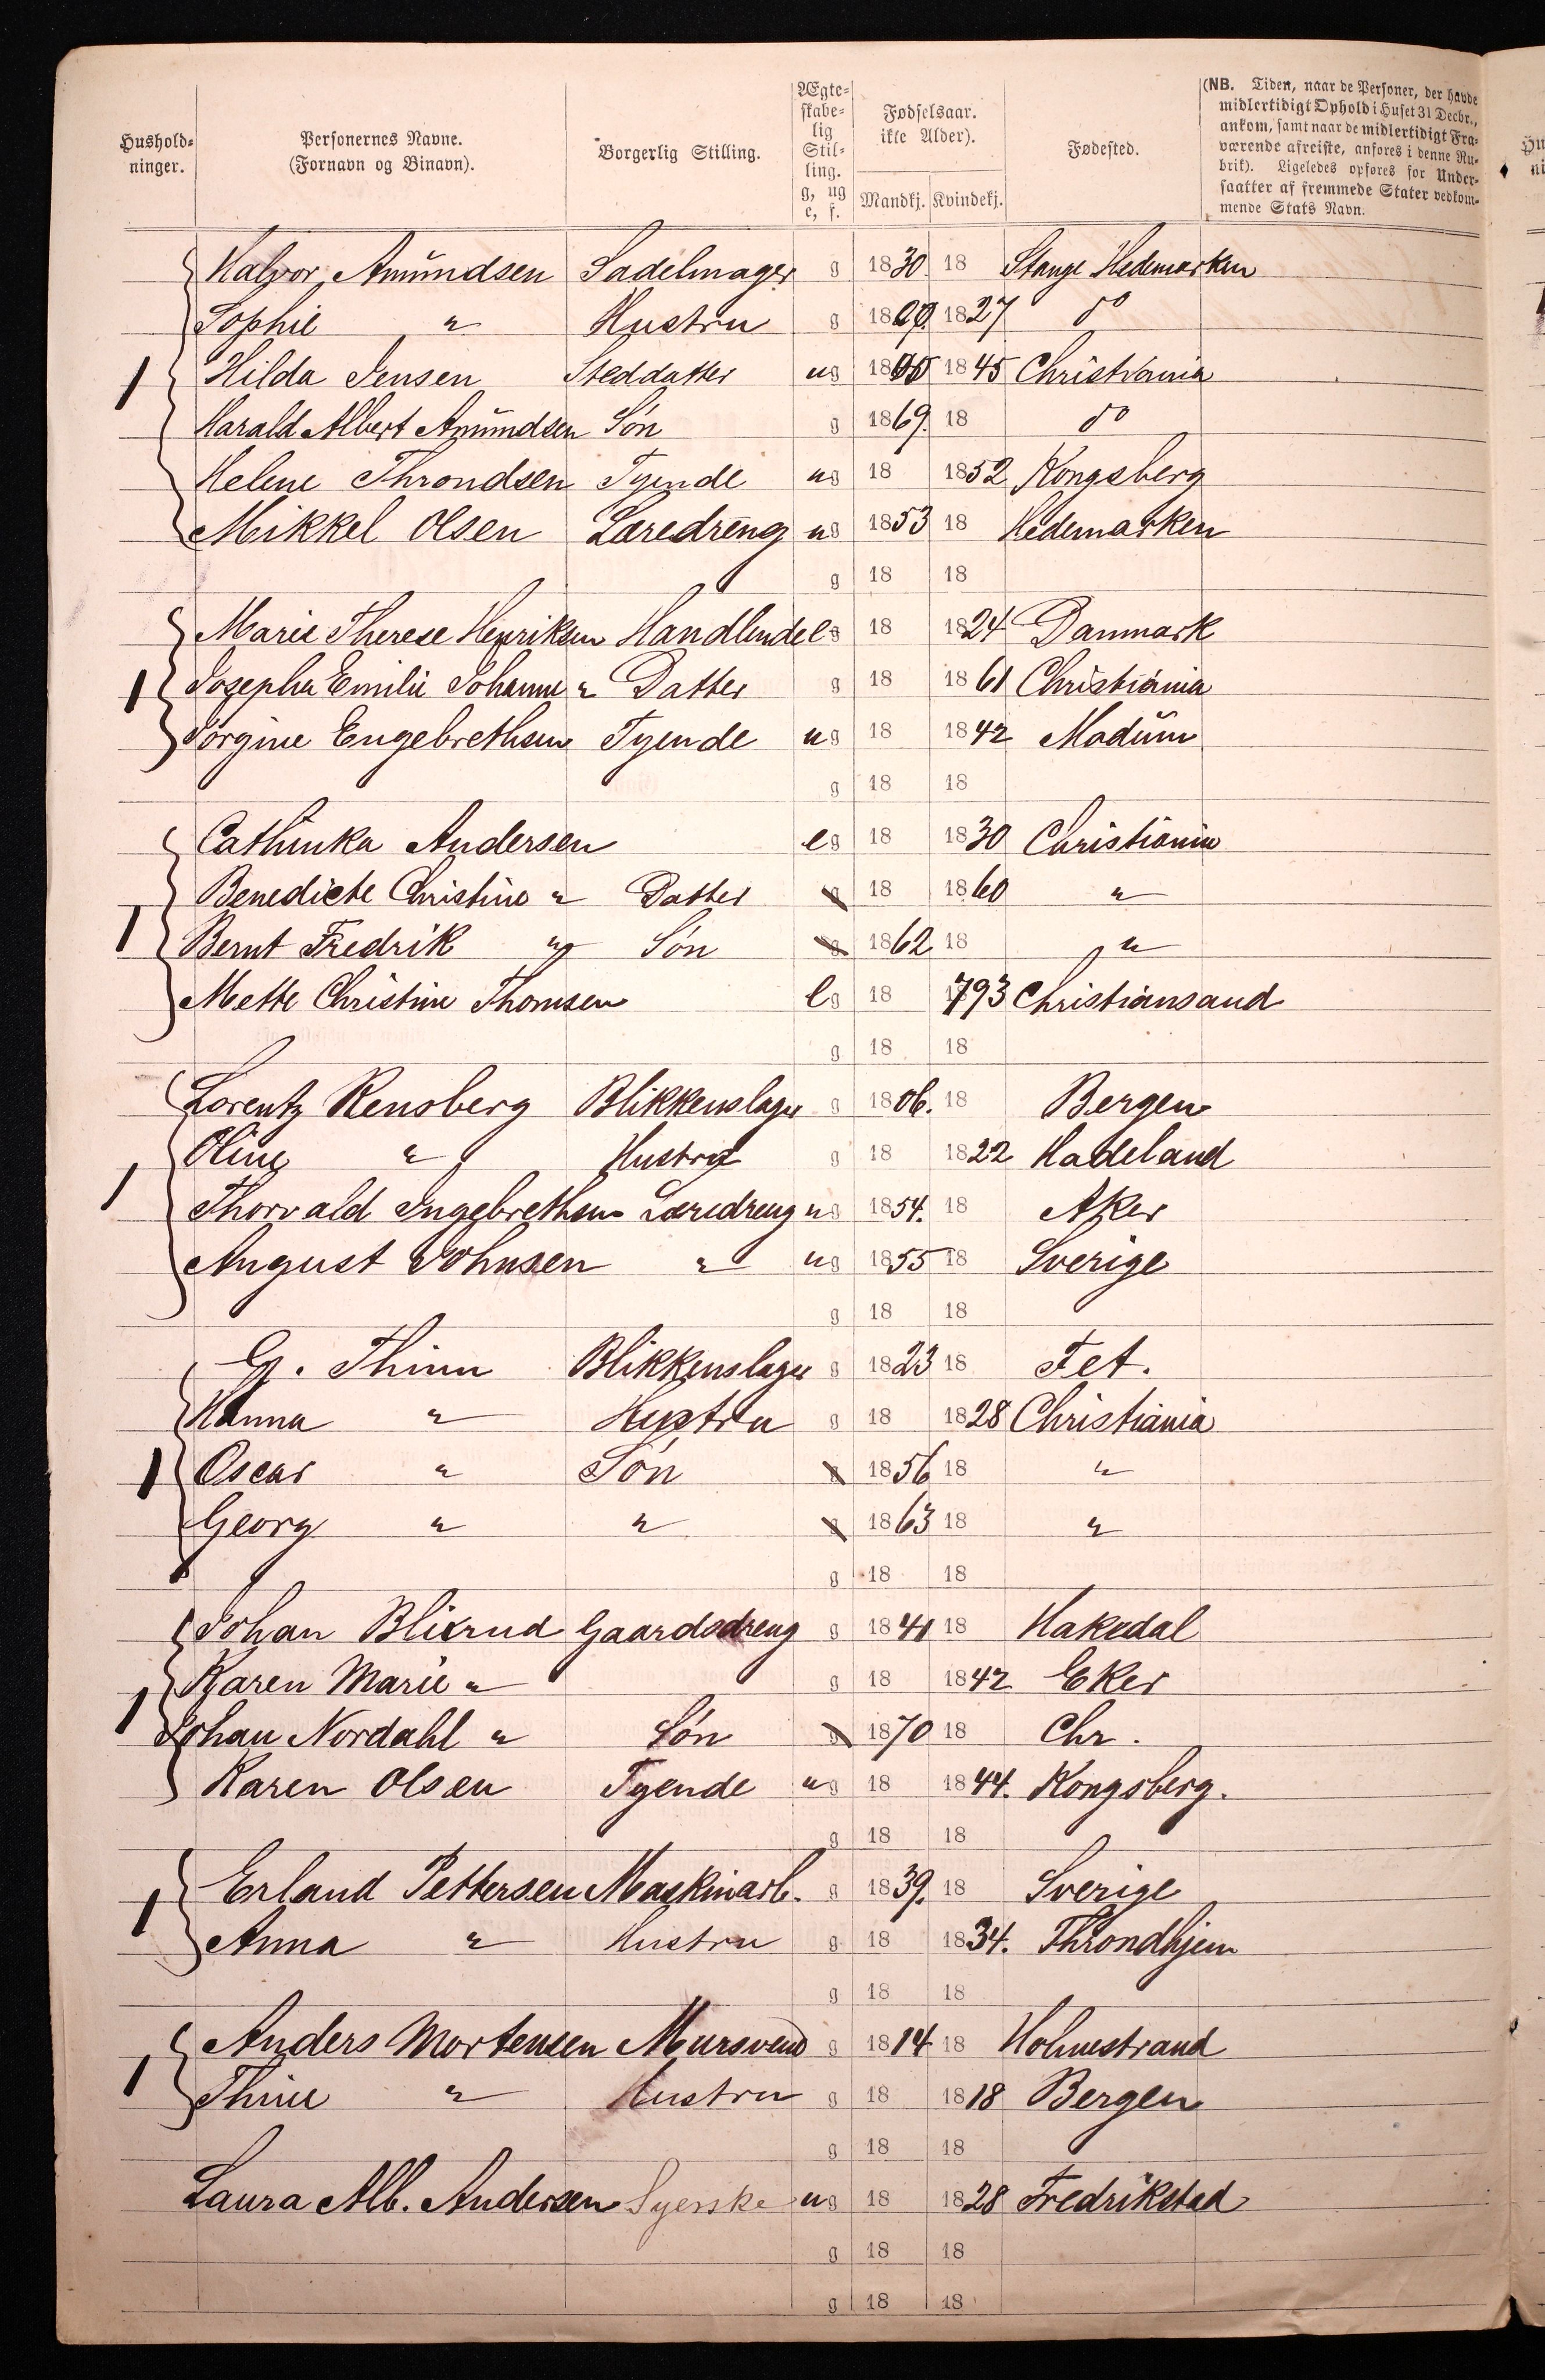 Hushold-
ninger.
Personernes Navne.
(Fornavn og Binavn).
Borgerlig Stilling.
Ægte-
skabe-
lig
Stil-
ling.
g, ug
e, f.
Fødselsaar.
ikke Alder).
Mandkj. Kvindekj.
Fødested.
(NB. Tiden, naar de Personer, der havde
midlertidigt Ophold i Huset 31 Decbr.,
ankom, samt naar de midlertidigt Fra-
værende afreiste, anføres i denne Ru-
brik). Ligeledes opføres for Under-
saatter af fremmede Stater vedkom-
mende Stats Navn.
Halvor Amundsen Sadelmager g 1830. 18 Stange Hedemarken
Sophie " Hustru g 18 1827 do
1 Hilda Jensen Steddatter ug 18 1845 Christiania
Harald Albert Amundsen Søn g 1869. 18 do
Helene Throndsen Tyende ug 18 1852 Kongsberg
Mikkel Olsen Læredreng ug 1853 18 Hedemarken
g 18 18
Marie Therese Henriksen Handlende eg 18 1824 Danmark
1 Josepha Emilie Johanne " Datter g 18 1861 Christiania
Jørgine Engebrethsen Tyende ug 18 1842 Modum
g 18 18
Cathinka Andersen eg 18 1830 Christiania
Benedicte Christine " Datter g 18 1860 "
1 Bernt Fredrik " Søn g 1862 18 "
Mette Christine Thomsen eg 18 1793 Christiansand
g 18 18
Lorentz Rensberg Blikkenslager g 1806. 18 Bergen
Oline " Hustru g 18 1822 Hadeland
1 Thorvald Ingebrethsen Læredreng ug 1854. 18 Aker
August Johnsen " ug 1855 18 Sverige
g 18 18
G. Thinn Blikkenslager g 1823 18 Fet.
Hanna " Hustru g 18 1828 Christiania
1 Oscar " Søn g 1856 18 "
Georg " " g 1863 18 "
g 18 18
Johan Blixrud Gaardsdreng g 1841 18 Hakedal
Karen Marie " g 18 1842 Eker
1 Johan Nordahl " Søn g 1870 18 Chr.
Karen Olsen Tyende ug 18 1844. Kongsberg.
g 18 18
1 Erland Pettersen Maskinarb. g 1839. 18 Sverige
Anna " Hustru g 18 1834. Throndhjem
g 18 18
1 Anders Mortensen Mursvend g 1814 18 Holmestrand
Thine " Hustru g 18 1818 Bergen
g 18 18
Laura Alb. Andersen Syerske ug 18 1828 Fredrikstad
g 18 18
g 18 18